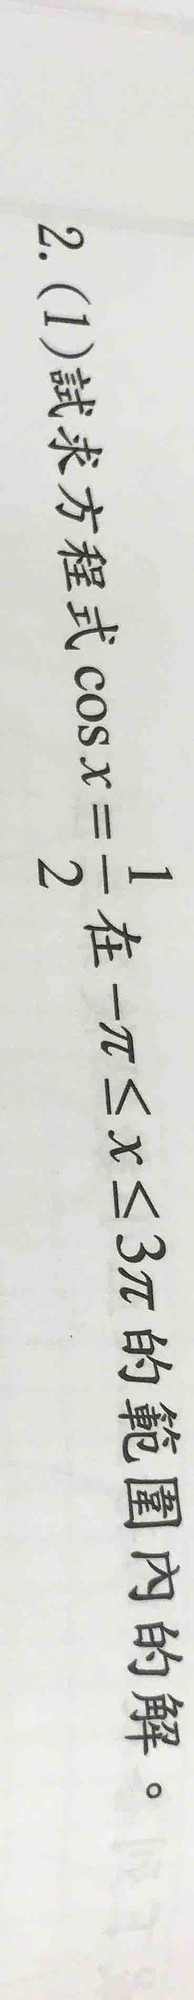 2. (1)試求方程式 cos x = 1/2 在 -π ≤ x ≤ 3π 的範圍內的解。